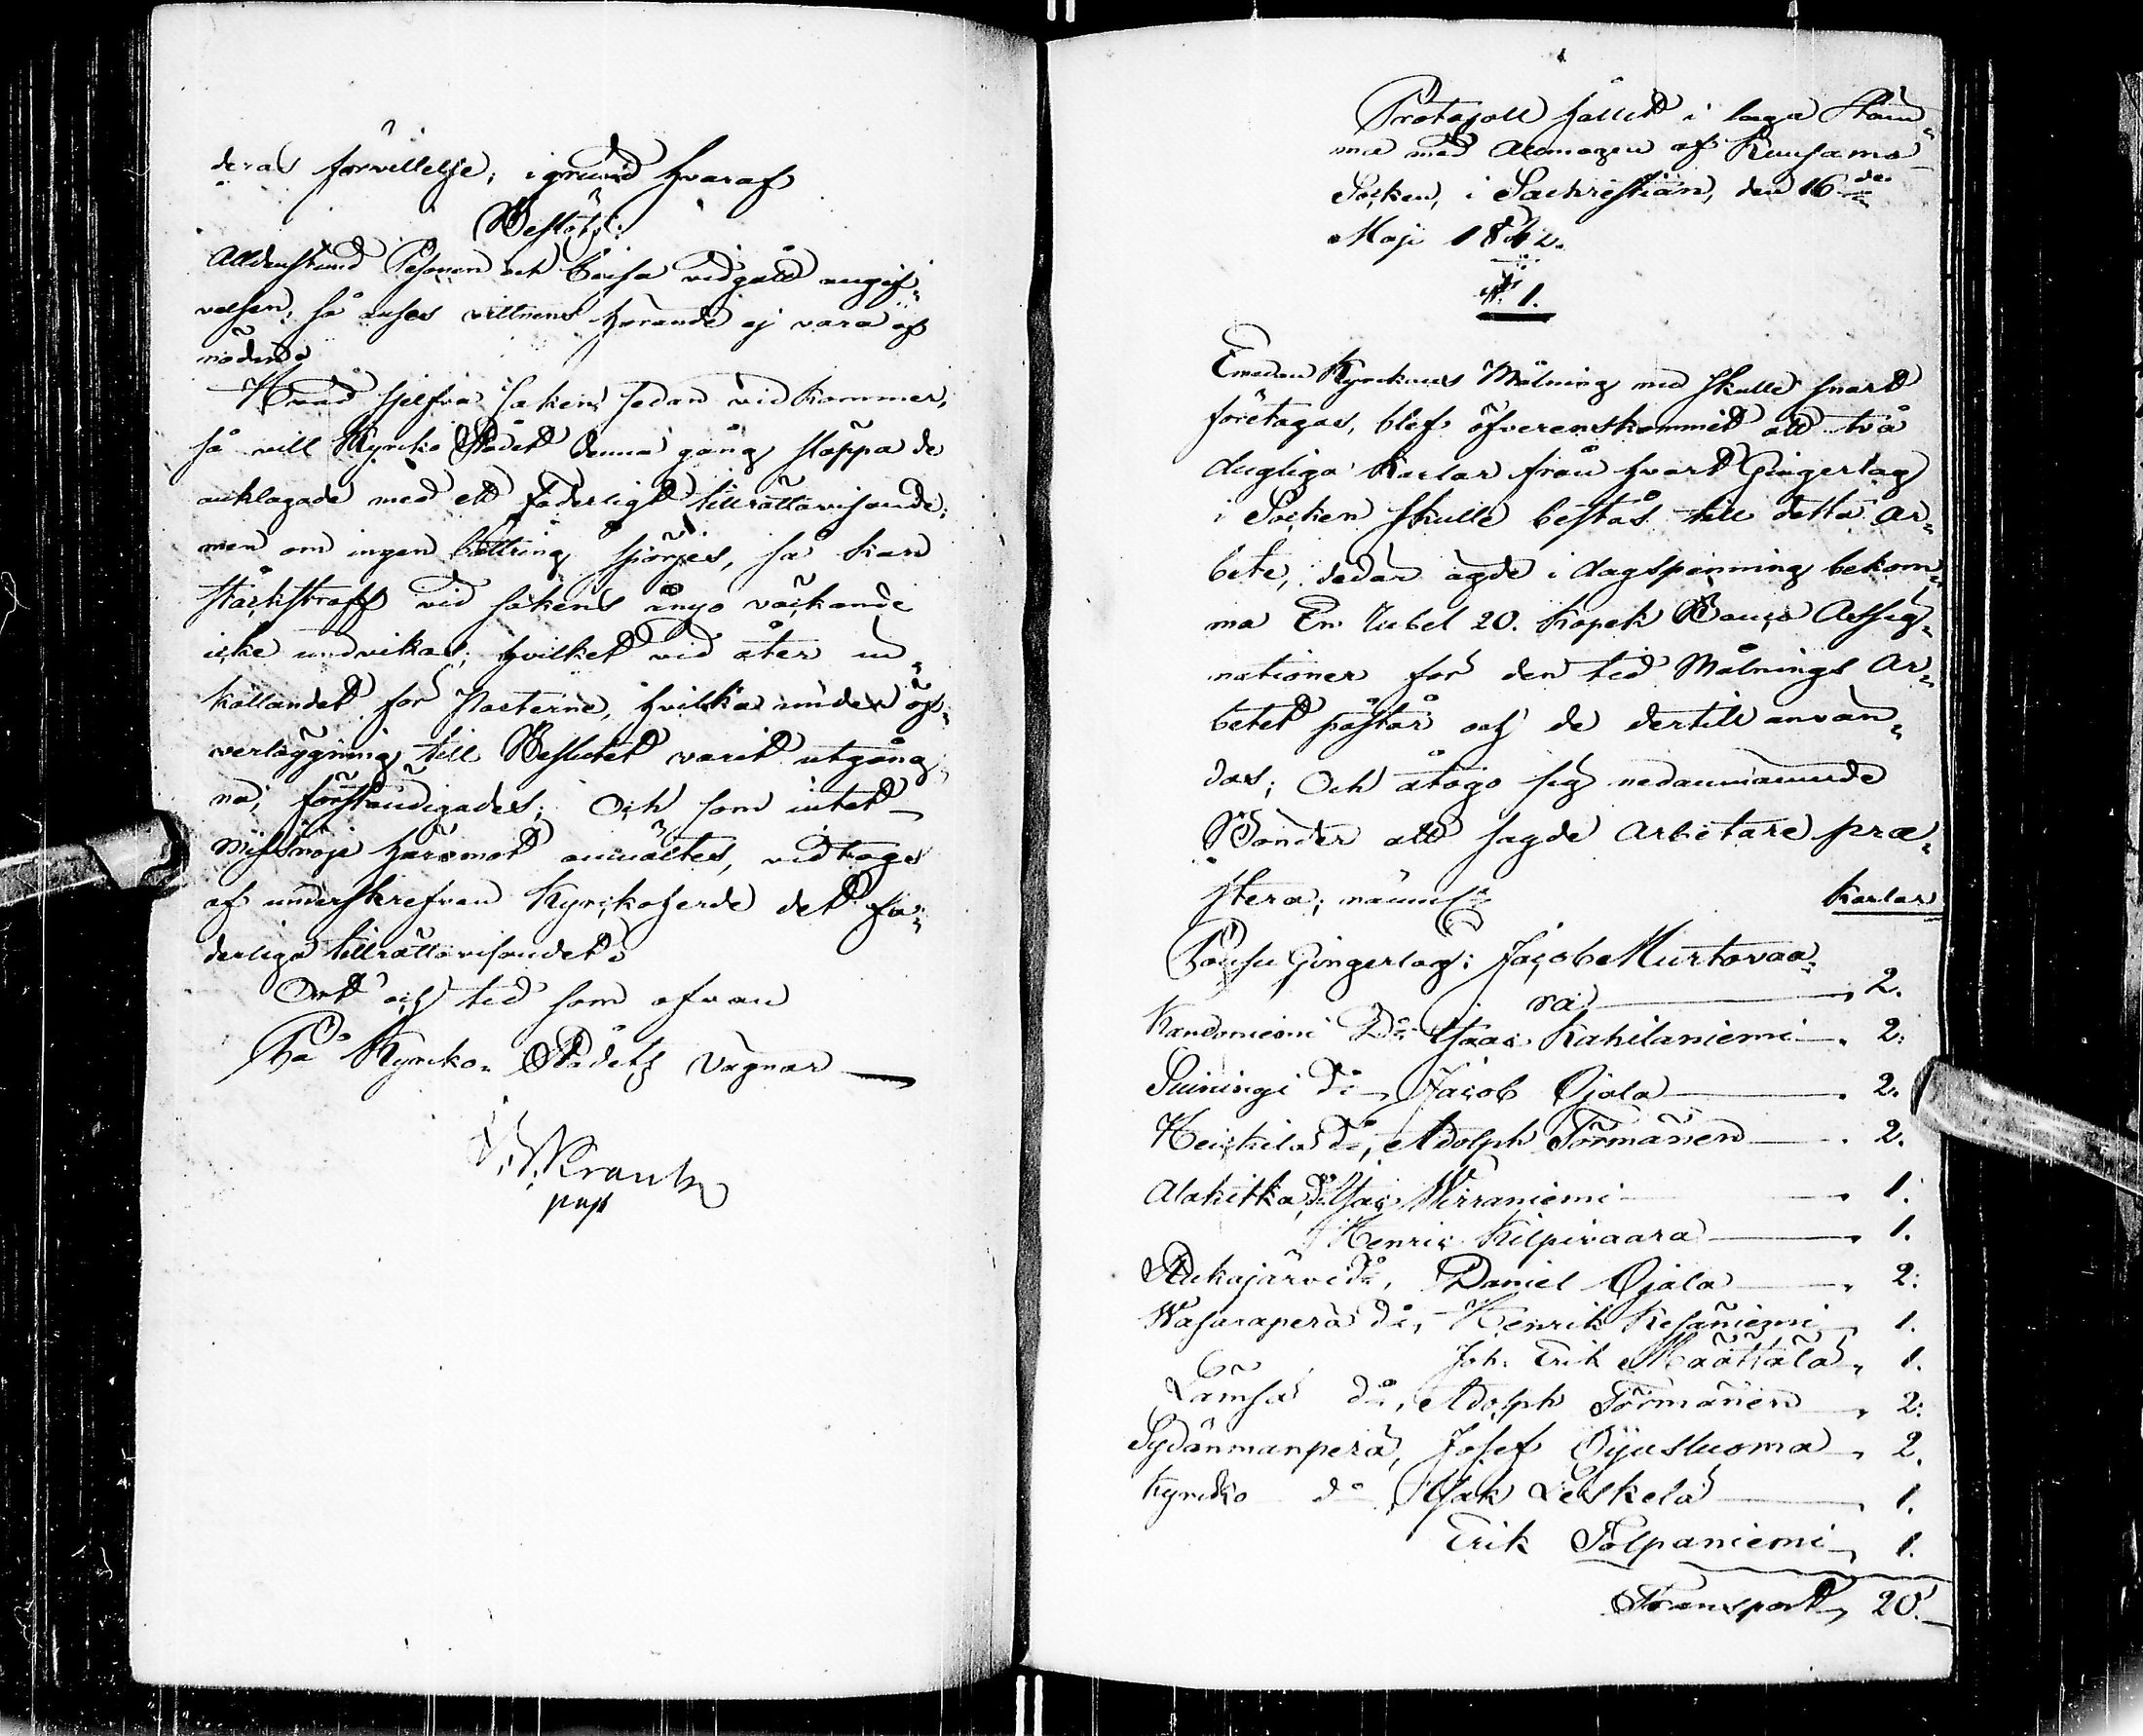 deras förvillelse; i grund hvaraf
Beslöts:
Alldenstund Pesonen och Caisa vidgått angif„
velsen, så anses vittnens hörande ej vara af
nöden.
Hvad sjelfva saken sedan vidkommer,
så vill Kyrko Rådet denna gång släppa de
anklagade med ett faderligt tillrättavisande;
men om ingen bättring spörjes, så kan
stockstraff vid sakens ånyo väckande
icke undvikas; hvilket vid åter in„
kallandet för Parterne, hvilka under öf„
verläggning till Beslutet varit utgång„
na, förständigades; Och som intet
missnöje häremot anmältes, vidtogs
af underskrefven Kyrkoherde det fa„
derliga tillrättavisandet.
Ort och tid som ofvan
På Kyrko-Rådets vägnar
Protocoll hållet i laga Stäm„
ma med Allmogen af Kuusamo
Socken, i Sachristian, den 16de
Maji 1842.
§. 1.
Emedan Kyrkans Målning nu skulle snart
företagas, blef öfverenskommit att två
dugliga Karlar från hvart Gingerlag
i Socken skulle bestås till detta ar„
bete, sedan ägde i dagspenning bekom„
ma En Rubel 20. Kopek Banco Assig„
nationer för den tid Målnings Ar„
betet påstår och de dertill använ„
das; Och åtogo sig nedannämnde
Bönder att sagde Arbetare præ„
stera; nämnl:
Karlar
Poussu Gingerlag: Jacob Murtovaa„
ra 2.
Kandoniemi Do Isaac Kahilaniemi 2.
Suiningi Do, Jacob Ojala 2.
Heikkilä Do, Adolph Törmänen 2.
Alakitka, Do Isac Virraniemi 1.
Henric Kilpivaara 1.
Rukajärvi Do, Daniel Ojala 2.
Wasaraperä do, Henrik Kesäniemi 1.
Joh. Erik Määttälä 1.
Lämsä do, Adolph Törmänen 2.
Sydänmanperä, Josef Öijusluoma 2.
Kyrcko do Isak Leskelä 1.
Erik Tolpaniemi 1.
Transport, 20.